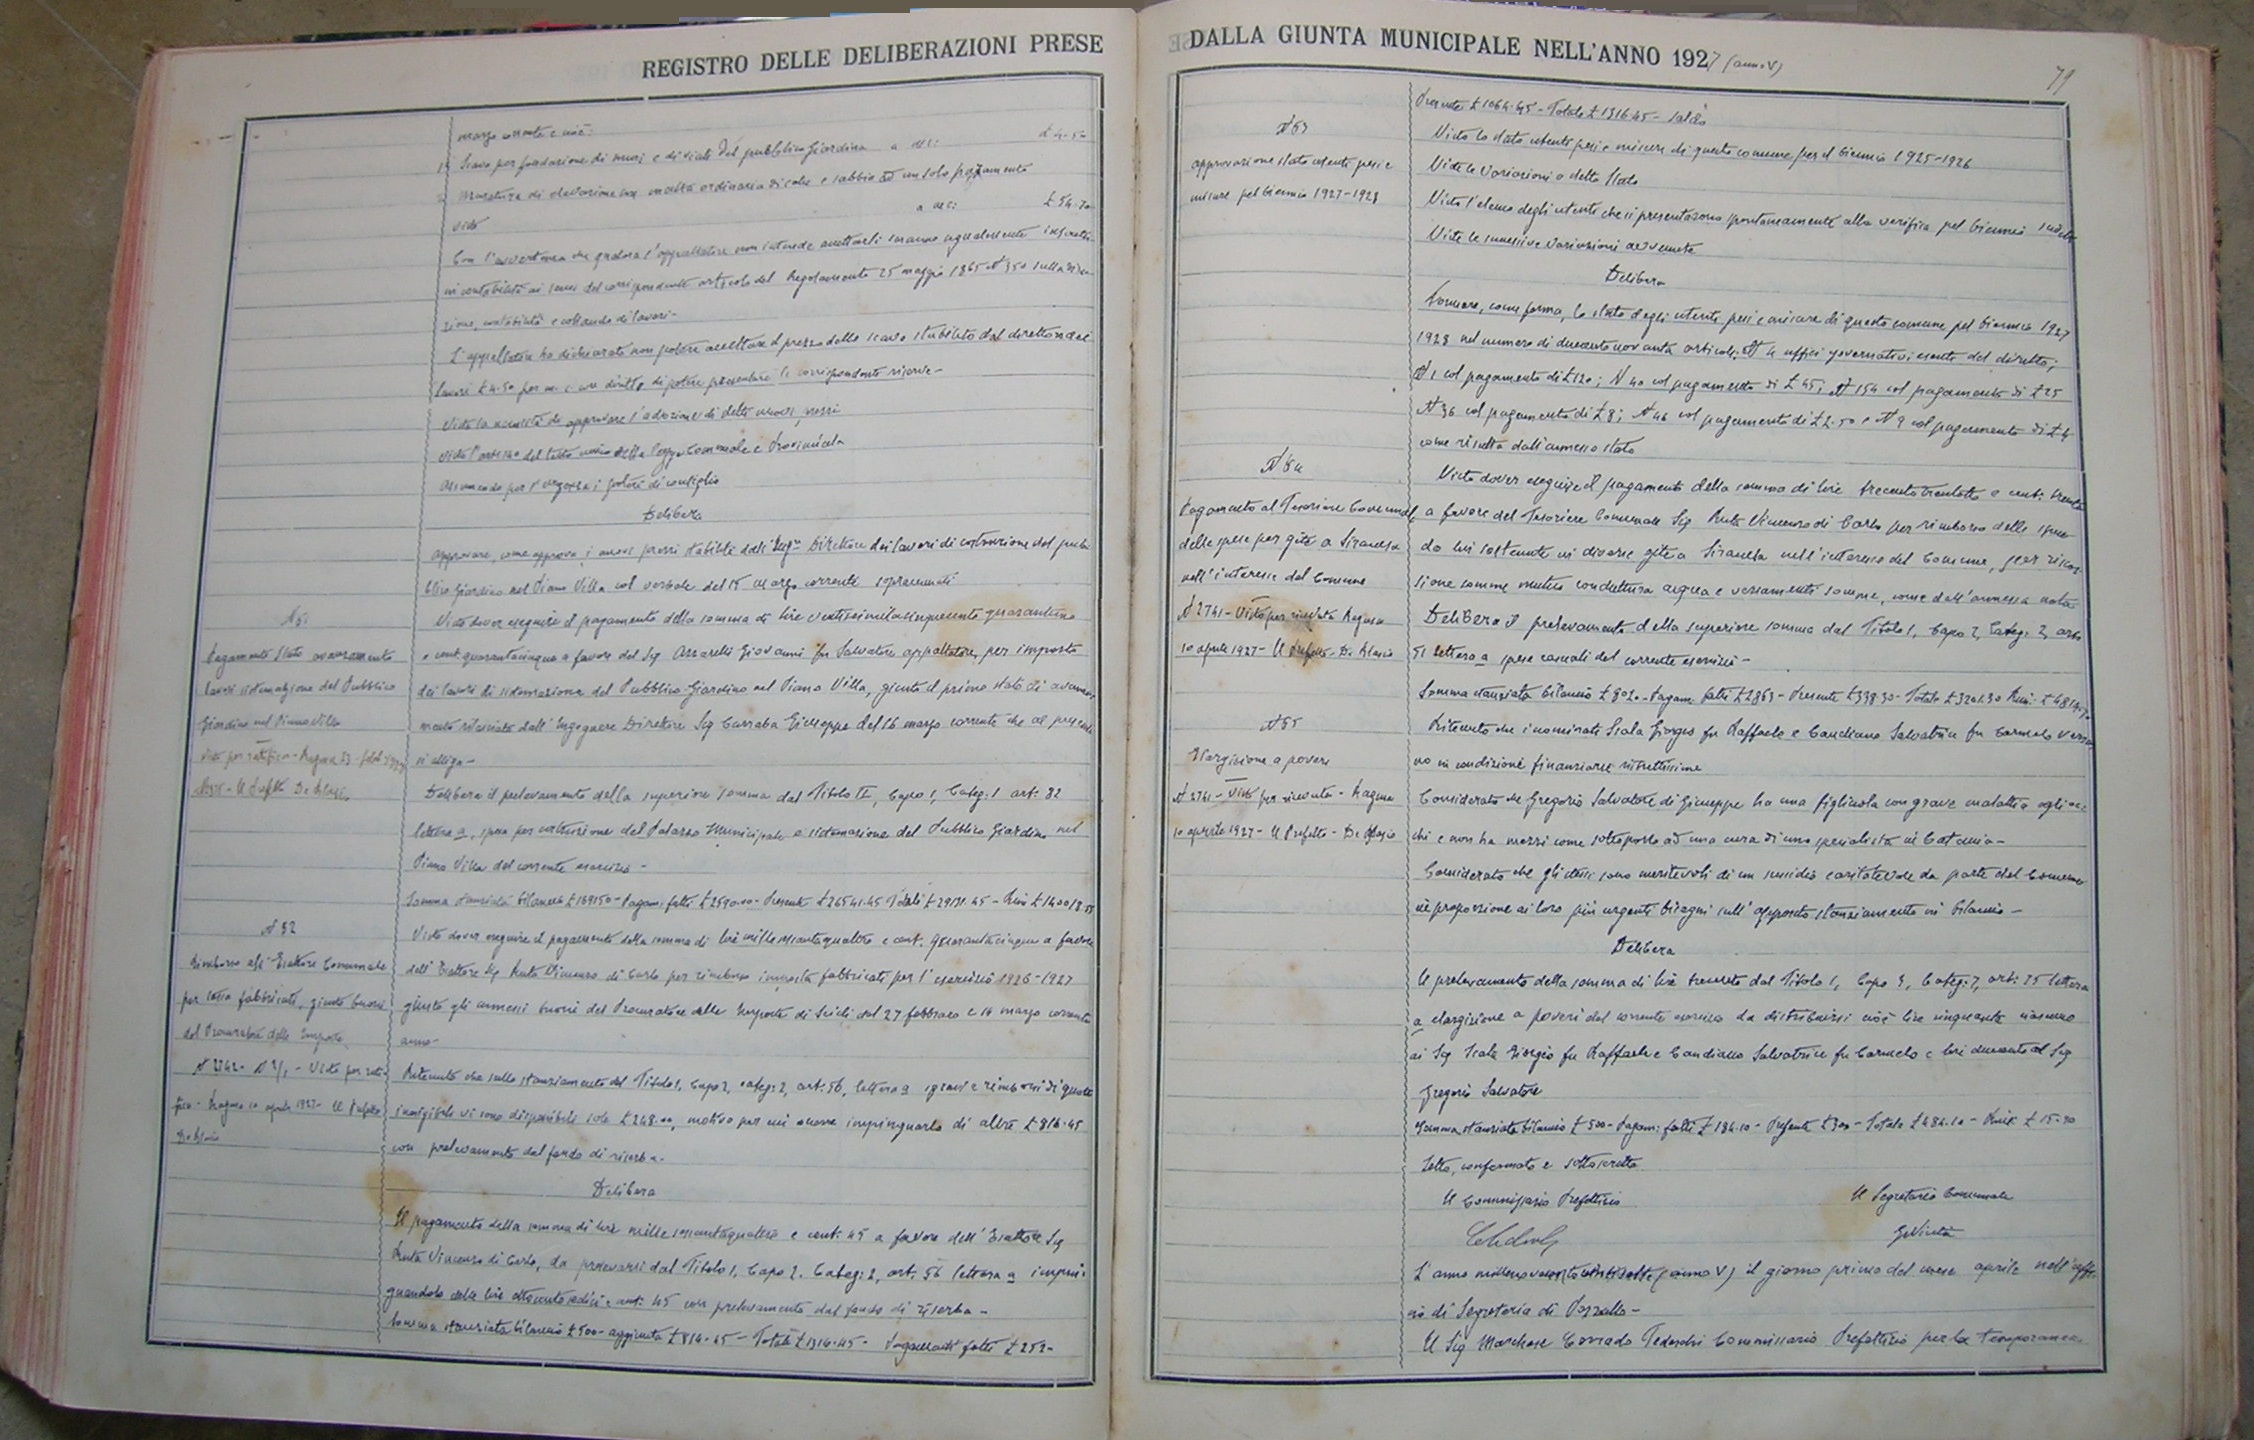 REGISTRO DELLE DELIBERAZIONI PRESE
marzo corrente e cioè:
1° Scavo per fondazione di muri e di viali del pubblico Giardino a mc: £ 4.50
2 Muratura di elevazione con malta ordinaria di calce e sabbia ad un solo paramento
a mc: £ 54.70
Visto
Con l'avvertenza che qualora l'appaltatore non intende accettarli saranno ugualmente
in contabilità ai sensi del corrispondente articolo del Regolamento 25 maggio 1865 N 350 sulla
zione, contabilità e collaudo di lavori-
L'appaltatore ha dichiarato non potere accettare il prezzo dello scavo stabilito dal direttore dei
lavori £ 4.50 per m. c con diritto di potere presentare le corrispondenti riserve-
Vista la necessità di approvare l'adozione di detti nuovi prezzi
Visto l'art del testo unico della legge Comunale e Provinciale
Assumendo per l'urgenza i poteri di consiglio
Delibera
approvare, come approva, i nuovi prezzi stabiliti dall'Ingre Direttore dei lavori di costruzione del pub-
blico Giardino nel Piano Villa col verbale del 15 marzo corrente
N 51
Pagamento Stato avanzamento
lavori sistemazione del Pubblico
Giardino nel Piano Villa
Visto per ratifica - Ragusa
Il Prefetto De Blasio
Visto dover eseguire il pagamento della somma di lire ventiseimilacinquecento quarantuno
e cent quarantacinque a favore del Sig Azzarelli Giovanni fu Salvatore appaltatore, per importo
dei lavori di sistemazione del Pubblico Giardino nel Piano Villa, giusta il primo stato di avanza-
mento rilasciato dall'Ingegnere Direttore Sig Carraba Giuseppe del 16 marzo corrente che al presente
si alliga-
Delibera il prelevamento della superiore somma dal Titolo II, Capo 1, Categ: 1 art: 82
lettera a, spesa per costruzione del Palazzo Municipale e sistemazione del Pubblico Giardino nel
Piano Villa del corrente esercizio-
Somma stanziata bilancio £ 169150- Pagam: fatti £ 2590.00- Presente £ 26541.45 Totali £ 29131.45 - Rim £ 140018.55
N 52
Rimborso all'Esattore Comunale
per tassa fabbricati, giusto buoni
del Procuratore delle Imposte
N 2742- - Visto per rati-
fica- Ragusa 10 aprile 1927- Il Prefetto
De Blasio
Visto dover eseguire il pagamento della somma di lire millesessantaquattro e cent. quarantacinque a favore
dell'Esattore Sig Ruta Vincenzo di Carlo per rimborso imposta fabbricati per l'esercizio 1926-1927
giusto gli annessi buoni del Procuratore delle Imposte di Scicli dal 27 febbraio e 14 marzo corrente
anno-
Ritenuto che sullo stanziamento del Titolo 1, Capo 2, categ: 2, art: 56, lettera a sgravi e rimborsi di quote
inesigibili vi sono disponibili sole £ 248.00, motivo per cui occorre impinguarlo di altre £ 816.45
con prelevamento dal fondo di riserba-
Delibera
Il pagamento della somma di lire millesessantaquattro e cent: 45 a favore dell'Esattore Sig
Ruta Vincenzo di Carlo, da prelevarsi dal Titolo 1, Capo 2. Categ: 2, art: 56 lettera a impin-
guandolo delle lire ottocentosedici e cent: 45 con prelevamento dal fondo di riserba-
Somma stanziata bilancio £ 500- aggiunta £ 816.45- Totale £ 1316.45- Pagamenti fatti £ 252-
DALLA GIUNTA MUNICIPALE NELL'ANNO 1927 (anno V)
79
Presente £ 1064.45- Totale £ 1316.45- saldo
N 53
approvazione stato utenti pesi e
misure pel biennio 1927-1928
Visto lo stato utenti pesi e misure di questo comune per il biennio 1925-1926
Vide le variazioni a detto Stato
Visto l'elenco degli utenti che si presentarono spontaneamente alla verifica pel biennio
Viste le successive variazioni avvenute
Delibera
Formare, come forma, lo stato degli utenti pesi e misure di questo comune pel biennio 1927
1928 nel numero di duecentonovanta articoli: N 4 uffici governativi esenti del diritto;
N 1 col pagamento di £ 120; N 40 col pagamento di £ 45; N 154 col pagamento di £ 25
N 36 col pagamento di £ 8; N 46 col pagamento di £ 2.50 e N 9 col pagamento di £ 4
come risulta dall'annesso stato
N 54
Pagamento al Tesoriere Comunale
delle spese per gite a Siracusa
nell'interesse del Comune
N 2741- Visto per ricevuta Ragusa
10 aprile 1927- Il Prefetto- De Blasio
Visto dover eseguire il pagamento della somma di lire trecentotrentotto e cent: trenta
a favore del Tesoriere Comunale Sig Ruta Vincenzo di Carlo per rimborso delle spese
da lui sostenute in diverse gite a Siracusa nell'interesse del Comune, per riscos-
sione somme mutuo conduttura acqua e versamenti somme, come dall'annessa nota
Delibera il prelevamento della superiore somma dal Titolo 1, Capo 2, Categ: 2, art:
51 lettera a spese casuali del corrente esercizio-
Somma stanziata bilancio £ - Pagam: fatti £ 2863- Presente £ 338.30- Totale £ 3201.30 Rim:
N 55
Elargizione a poveri
N 2741- Visto per ricevuta- Ragusa
10 aprile 1927- Il Prefetto- De Blasio
Ritenuto che i nominati Scala Giorgio fu Raffaele e Candiano Salvatrice fu Carmelo versa-
no in condizioni finanziarie ristrettissime
Considerato che Gregorio Salvatore di Giuseppe ha una figliuola con grave malattia agli oc-
chi e non ha mezzi come sottoporla ad una cura di uno specialista in Catania-
Considerato che gli stessi sono meritevoli di un sussidio caritatevole da parte del Comune
in proporzione ai loro più urgenti bisogni sull'apposito stanziamento in bilancio-
Delibera
Il prelevamento della somma di lire trecento dal Titolo 1, Capo 3, Categ: 7, art: 75 lettera
a elargizione a poveri del corrente esercizio da distribuirsi cioè lire cinquanta ciascuno
ai Sig Scala Giorgio fu Raffaele e Candiano Salvatrice fu Carmelo e lire duecento al Sig
Gregorio Salvatore
Somma stanziata bilancio £ 500- Pagam: fatti £ 184.10- Presente £ 300- Totale £ 484.10- Rim: £ 15.90
Letto, confermato e sottoscritto
Il Commissario Prefettizio Il Segretario Comunale
L'anno millenovecentoventisette (anno V) il giorno primo del mese aprile nell'uffi-
cio di Segreteria di Pozzallo-
Il Sig Marchese Corrado Tedeschi Commissario Prefettizio per la temporanea